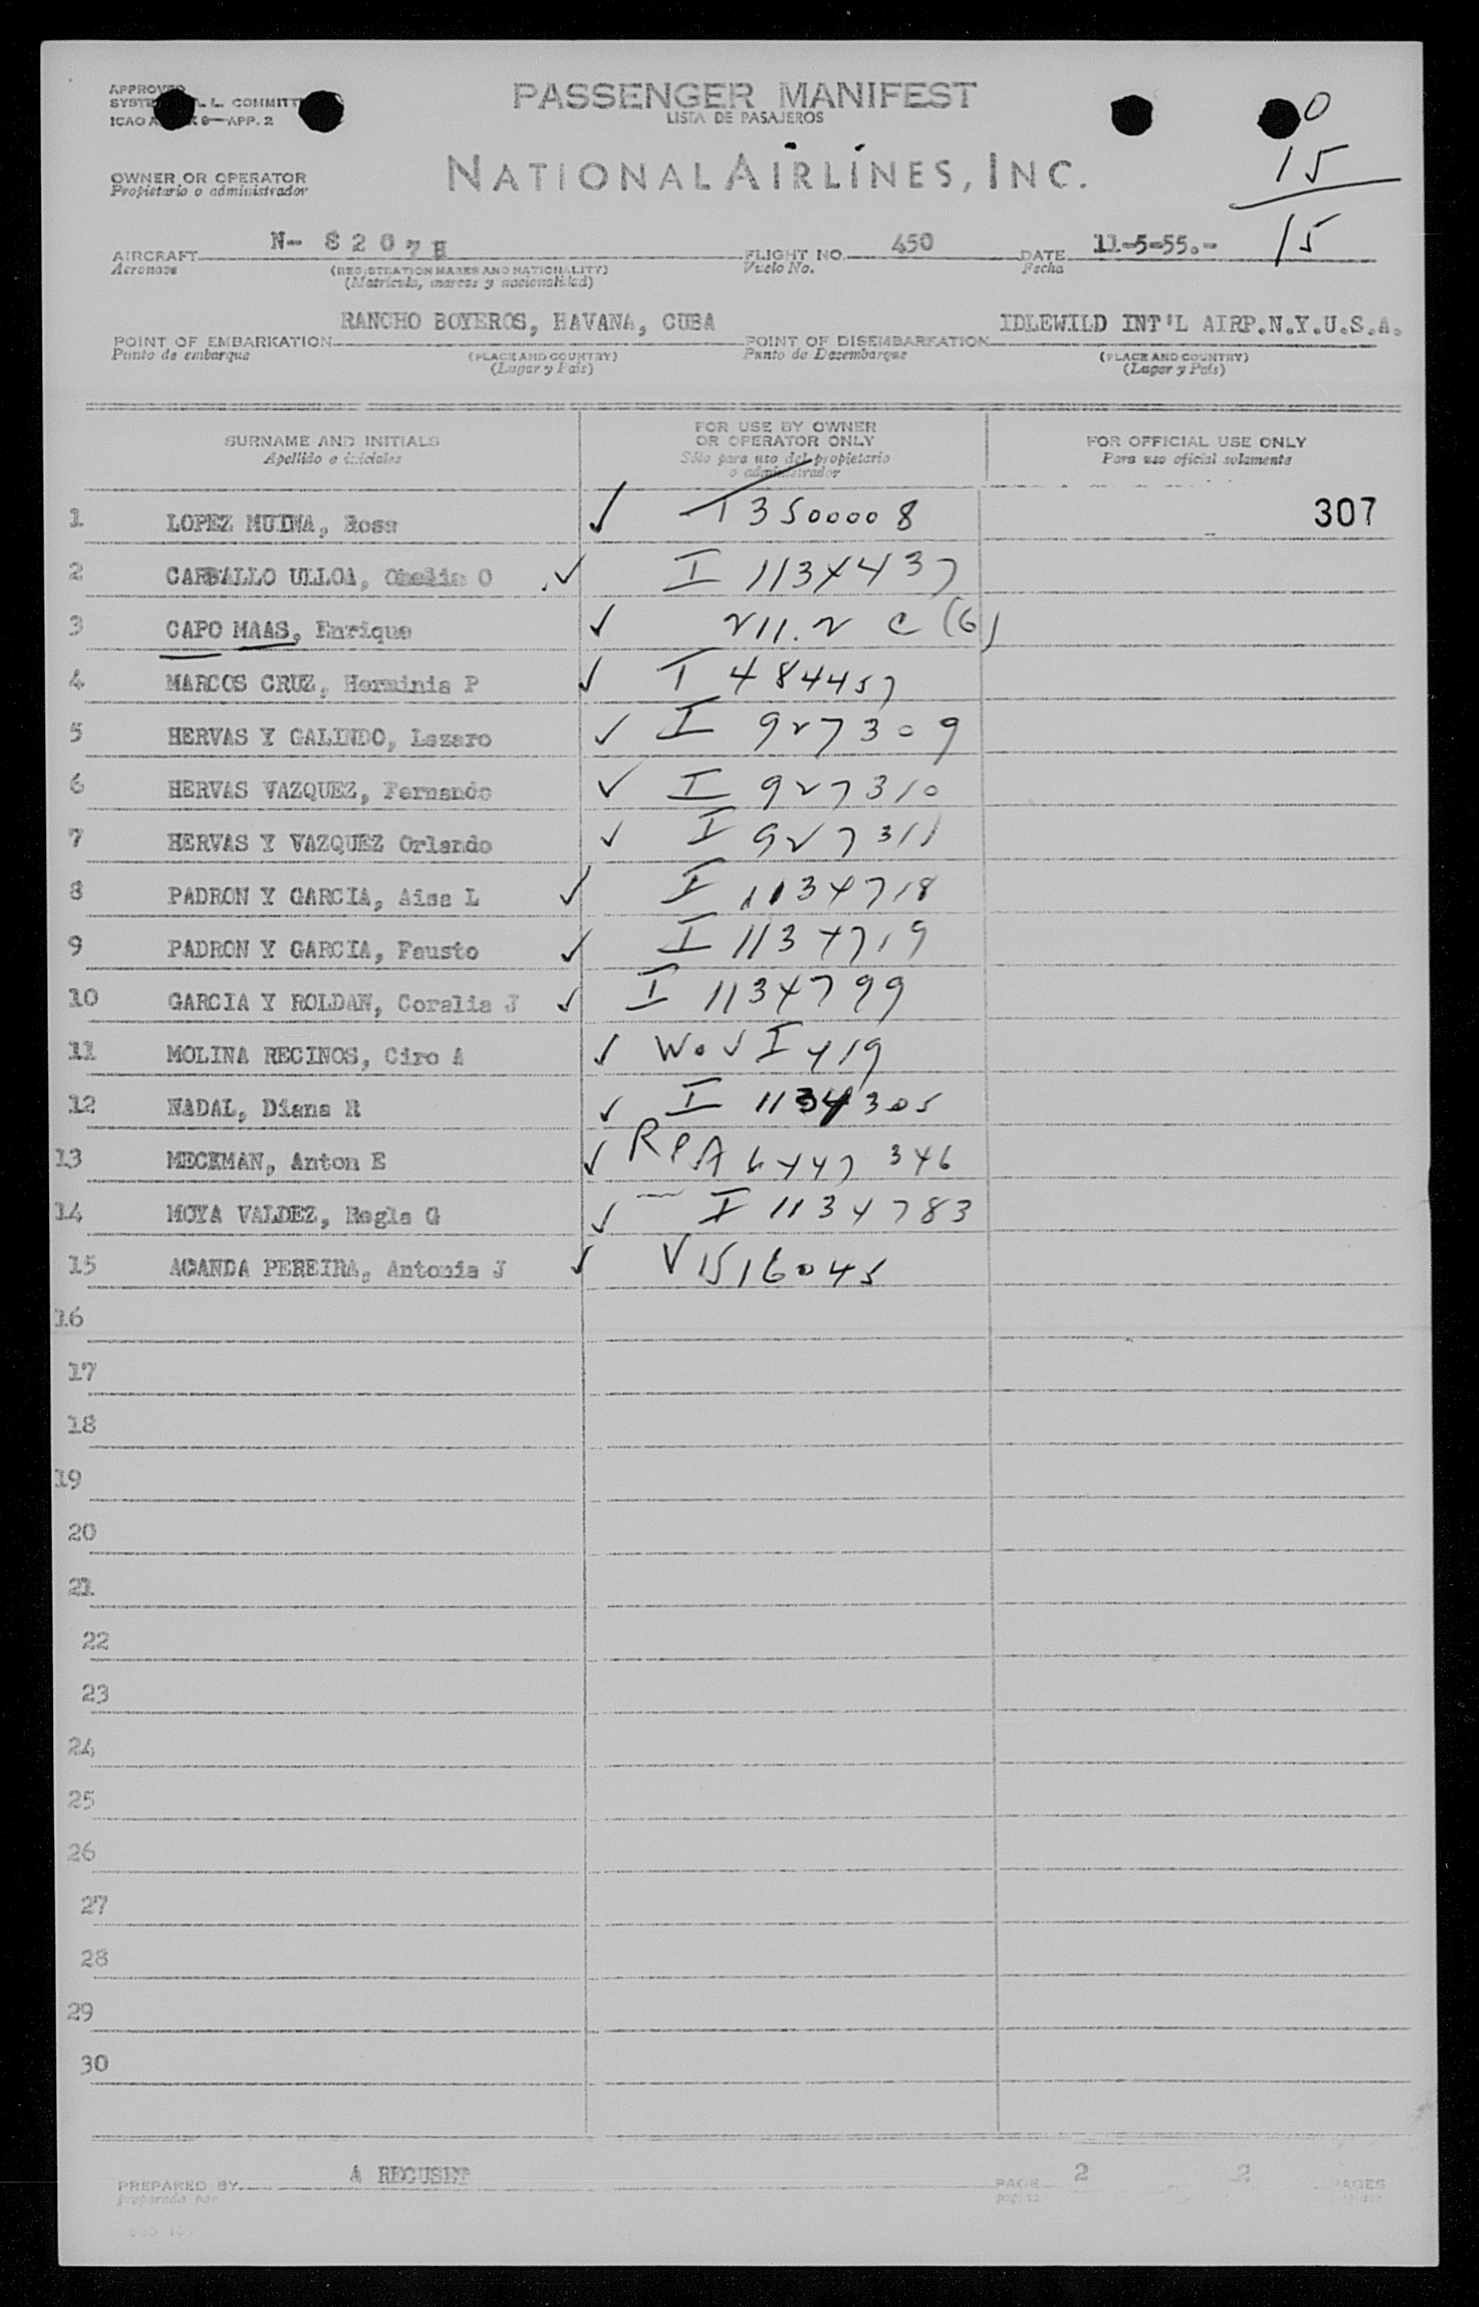 APPROVED
SYSTE A. L. COMMITT
ICAO A X 9—APP. 2
PASSENGER MANIFEST
LISTA DE PASAJEROS
0
15
15
OWNER OR OPERATOR
Propietario o administrador
NATIONAL AIRLINES, INC.
AIRCRAFT N- 8207H FLIGHT NO. 450 DATE 11-5-55.-
Aeronave (REGISTRATION MARKS AND NATIONALITY) Vuelo No. Fecha
(Matricula, marcas y nacionalidad)
POINT OF EMBARKATION RANCHO BOYEROS, HAVANA, CUBA POINT OF DISEMBARKATION IDLEWILD INT'L AIRP.N.Y.U.S.A.
Punto de embarque (PLACE AND COUNTRY) Punto de Desembarque (PLACE AND COUNTRY)
(Lugar y País) (Lugar y País)
SURNAME AND INITIALS FOR USE BY OWNER OR OPERATOR ONLY FOR OFFICIAL USE ONLY
Apellido e iniciales Sólo para uso del propietario o administrador Para uso oficial solamente
1 LOPEZ MUINA, Rosa ✓ T 3500008 307
2 CARBALLO ULLOA, O ✓ I 1134437
3 CAPO MAAS, Enrique ✓ 211.2 C (G)
4 MARCOS CRUZ, Herminia P ✓ T 484457
5 HERVAS Y GALINDO, Lazaro ✓ I 927309
6 HERVAS VAZQUEZ, Fernando ✓ I 927310
7 HERVAS Y VAZQUEZ Orlando ✓ I 927311
8 PADRON Y GARCIA, Aisa L ✓ I 1134718
9 PADRON Y GARCIA, Fausto ✓ I 1134719
10 GARCIA Y ROLDAN, Coralia J ✓ I 1134799
11 MOLINA RECINOS, Ciro A ✓ I 419
12 NADAL, Diana R ✓ I 1134305
13 MECKMAN, Anton E ✓ RPA 6447 346
14 MOYA VALDEZ, Regla G ✓ I 1134783
15 ACANDA PEREIRA, Antonia J ✓ V 1516045
16
17
18
19
20
21
22
23
24
25
26
27
28
29
30
PREPARED BY A PAGE 2 2 PAGES
preparado por